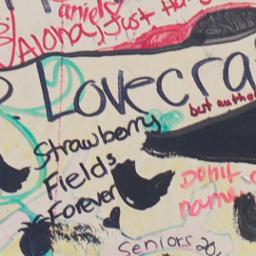 Aloha, Just Ha
P. Lovecra
but autho
Strawberry
Fields
Forever
name
Seniors 20